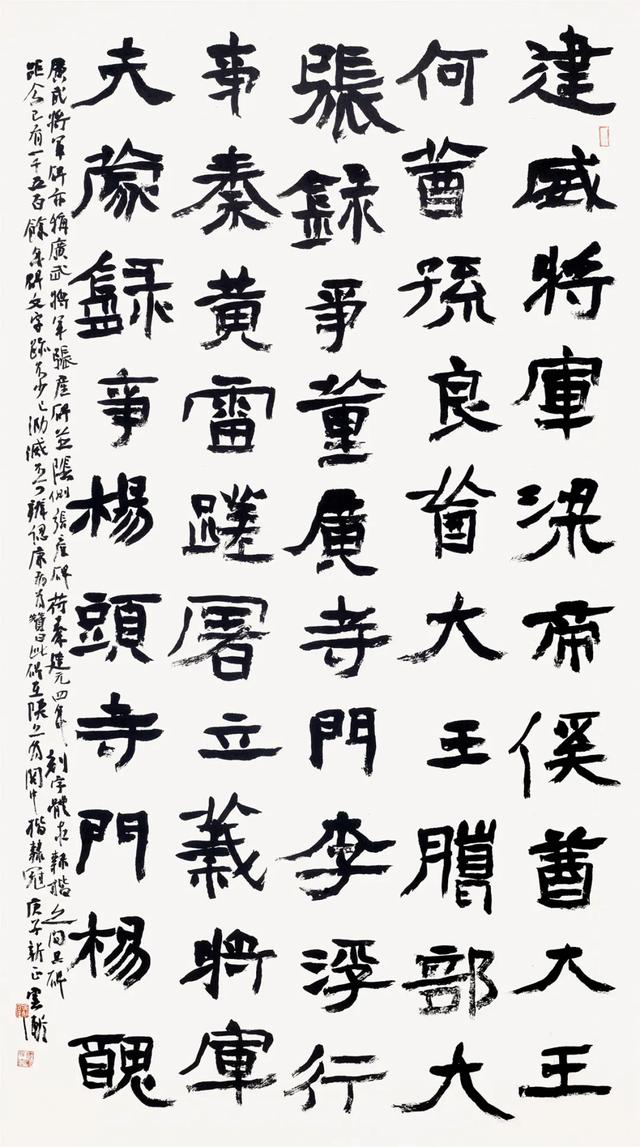 建威將軍梁帝傒酋大王
何酋孫良酋大王部大
張錄事董廣寺門李浮行
事秦黃雷蹉屠立義將軍
夫蒙錄事楊頭寺門楊醜
廣武將軍碑亦稱廣武將軍張產碑並張產碑苻秦建元四年刻字體在隸楷之間其碑
距今已有一千五百餘年碑文字跡不少已泐滅不可辨認康有為贊曰此碑在陝為關中楷隸冠庚子新正